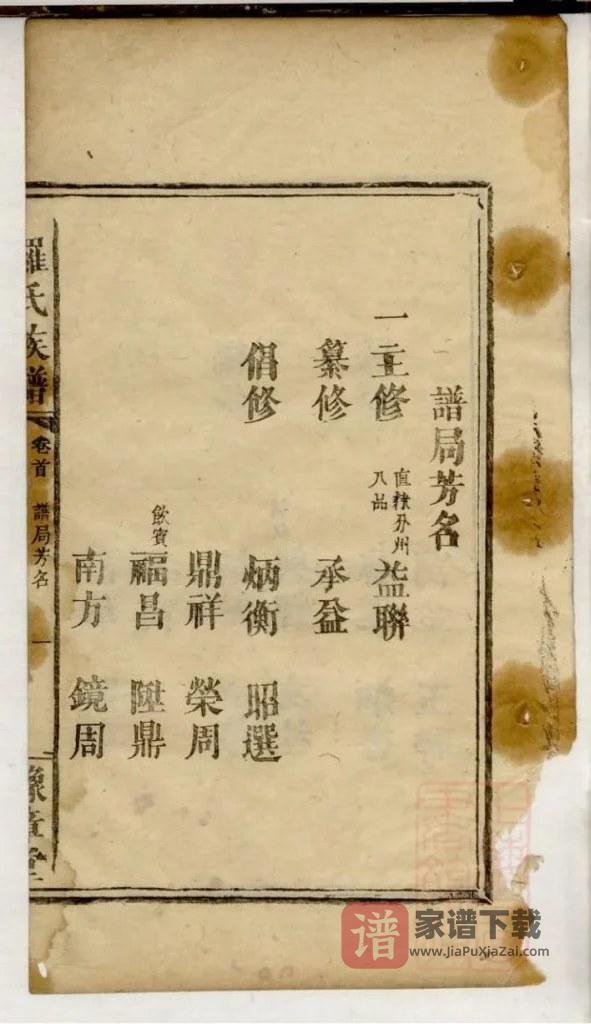 譜局芳名
一主修 直隸分州 八品 益聯
纂修 承益
倡修 炳衡 昭選
鼎祥 榮周
飲賓 福昌 陞鼎
南方 鏡周
羅氏族譜 卷首 譜局芳名 一 豫章堂
谱 家谱下载
www.JiaPuXiaZai.com